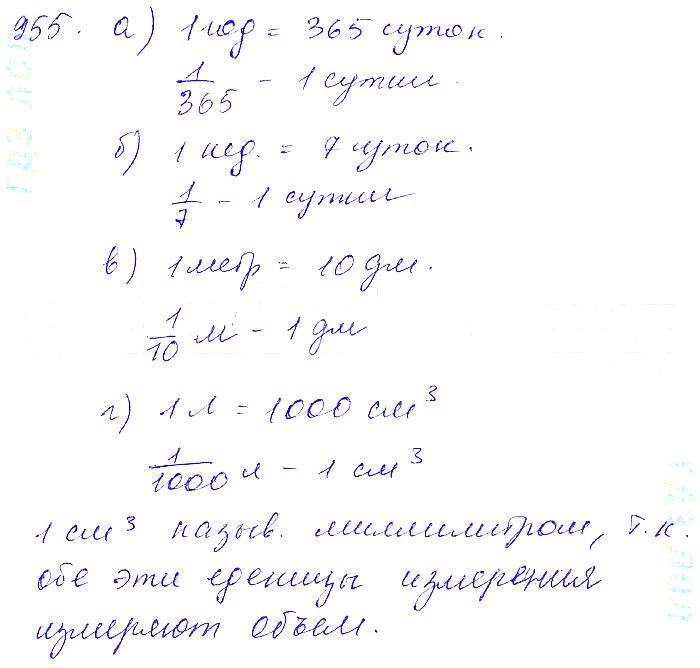 955. а) 1 год = 365 суток.
1/365 - 1 сутки
б) 1 нед. = 7 суток.
1/7 - 1 сутки
в) 1 метр = 10 дм.
1/10 м - 1 дм
г) 1 л = 1000 см³
1/1000 л - 1 см³
1 см³ назыв. миллимитром, т.к.
обе эти еденицы измерения
измеряют объем.
гдз лол
гдз лол